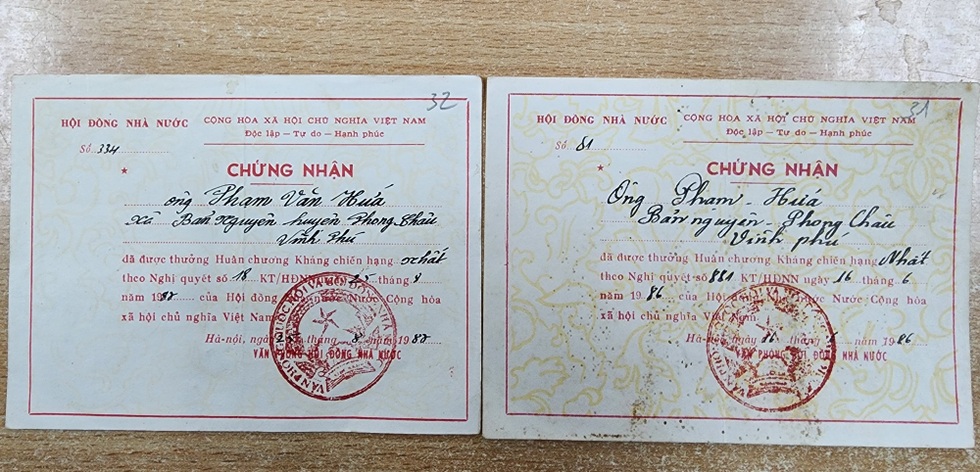 32
HỘI ĐỒNG NHÀ NƯỚC
CỘNG HÒA XÃ HỘI CHỦ NGHĨA VIỆT NAM
Độc lập — Tự do — Hạnh phúc
Số 334
CHỨNG NHẬN
ông Phạm Văn Hứa
xã Bản Nguyên huyện Phong Châu
Vĩnh Phú
đã được thưởng Huân chương Kháng chiến hạng nhất
theo Nghị quyết số 18 KT/HĐNN ngày 25 tháng 8
năm 1988 của Hội đồng Nhà nước Nước Cộng hòa
xã hội chủ nghĩa Việt Nam
Hà-nội, ngày 25 tháng 8 năm 1988
VĂN PHÒNG HỘI ĐỒNG NHÀ NƯỚC
VĂN PHÒNG QUỐC HỘI VÀ HỘI ĐỒNG NHÀ NƯỚC
31
HỘI ĐỒNG NHÀ NƯỚC
CỘNG HÒA XÃ HỘI CHỦ NGHĨA VIỆT NAM
Độc lập — Tự do — Hạnh phúc
Số 81
CHỨNG NHẬN
Ông Phạm - Hứa
Bản nguyên - Phong Châu
Vĩnh phú
đã được thưởng Huân chương Kháng chiến hạng Nhất
theo Nghị quyết số 881 KT/HĐNN ngày 16 tháng 6
năm 1986 của Hội đồng Nhà nước Nước Cộng hòa
xã hội chủ nghĩa Việt Nam.
Hà-nội, ngày 16 tháng năm 1986
VĂN PHÒNG HỘI ĐỒNG NHÀ NƯỚC